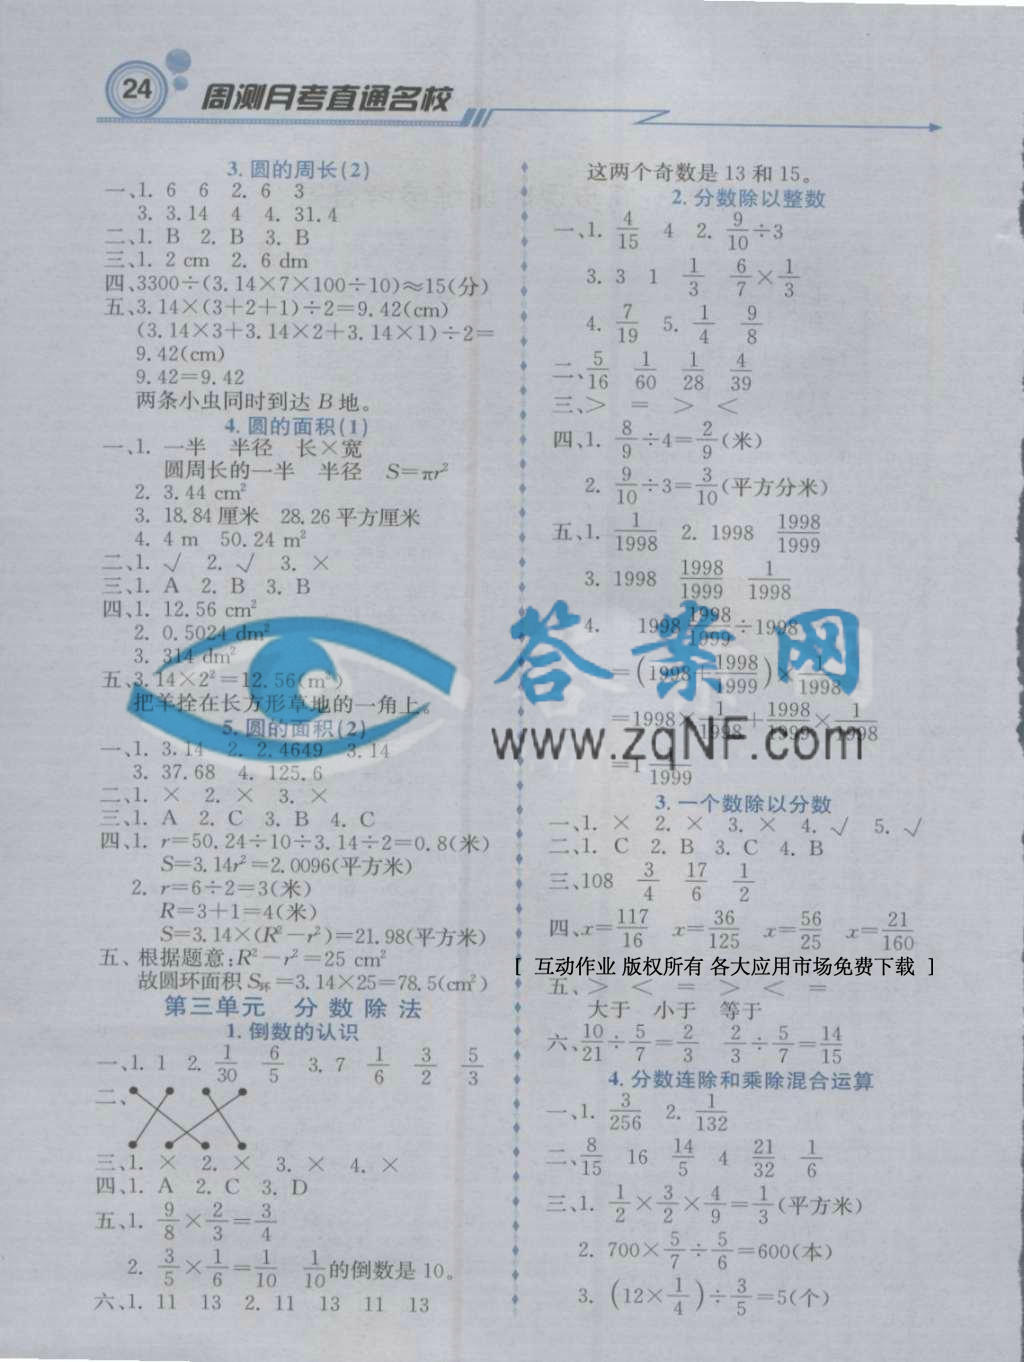 24
周测月考直通名校
3. 圆的周长(2)
一、1. 6 6 2. 6 3
3. 3.14 4 4. 31.4
二、1. B 2. B 3. B
三、1. 2 cm 2. 6 dm
四、3300÷(3.14×7×100÷10)≈15(分)
五、3.14×(3+2+1)÷2=9.42(cm)
(3.14×3+3.14×2+3.14×1)÷2=
9.42(cm)
9.42=9.42
两条小虫同时到达 B 地。
4. 圆的面积(1)
一、1. 一半 半径 长×宽
圆周长的一半 半径 S=πr²
2. 3.44 cm²
3. 18.84厘米 28.26平方厘米
4. 4 m 50.24 m²
二、1. √ 2. √ 3. ×
三、1. A 2. B 3. B
四、1. 12.56 cm²
2. 0.5024 dm²
3. 314 dm²
五、3.14×2²=12.56(m²)
把羊拴在长方形草地的一角上。
5. 圆的面积(2)
一、1. 3.14 2. 2.4649 3.14
3. 37.68 4. 125.6
二、1. × 2. × 3. ×
三、1. A 2. C 3. B 4. C
四、1. r=50.24÷10÷3.14÷2=0.8(米)
S=3.14r²=2.0096(平方米)
2. r=6÷2=3(米)
R=3+1=4(米)
S=3.14×(R²-r²)=21.98(平方米)
五、根据题意:R²-r²=25 cm²
故圆环面积 S环=3.14×25=78.5(cm²)
第三单元 分数除法
1. 倒数的认识
一、1. 1 2. 1/30 6/5 3. 7 1/6 3/2 5/3
二、
三、1. × 2. × 3. × 4. ×
四、1. A 2. C 3. D
五、1. 9/8×2/3=3/4
2. 3/5×1/6=1/10 1/10的倒数是10。
六、1. 11 13 2. 11 13 11 13
这两个奇数是13和15。
2. 分数除以整数
一、1. 4/15 4 2. 9/10÷3
3. 3 1 1/3 6/7×1/3
4. 7/19 5. 1/4 9/8
二、5/16 1/60 1/28 4/39
三、> = > <
四、1. 8/9÷4=2/9(米)
2. 9/10÷3=3/10(平方分米)
五、1. 1/1998 2. 1998 1998/1999
3. 1998 1998/1999 1/1998
4. 1998 1998/1999÷1998
=(1998+1998/1999)×1/1998
=1998×1/1998+1998/1999×1/1998
=1 1/1999
答案网
www.zqNF.com
3. 一个数除以分数
一、1. × 2. × 3. × 4. √ 5. √
二、1. C 2. B 3. C 4. B
三、108 3/4 17/6 1/2
四、x=117/16 x=36/125 x=56/25 x=21/160
[ 互动作业 版权所有 各大应用市场免费下载 ]
五、> < = > < =
大于 小于 等于
六、10/21÷5/7=2/3 2/3÷5/7=14/15
4. 分数连除和乘除混合运算
一、1. 3/256 2. 1/132
二、8/15 16 14/5 4 21/32 1/6
三、1. 1/2×3/2×4/9=1/3(平方米)
2. 700×5/7÷5/6=600(本)
3. (12×1/4)÷3/5=5(个)